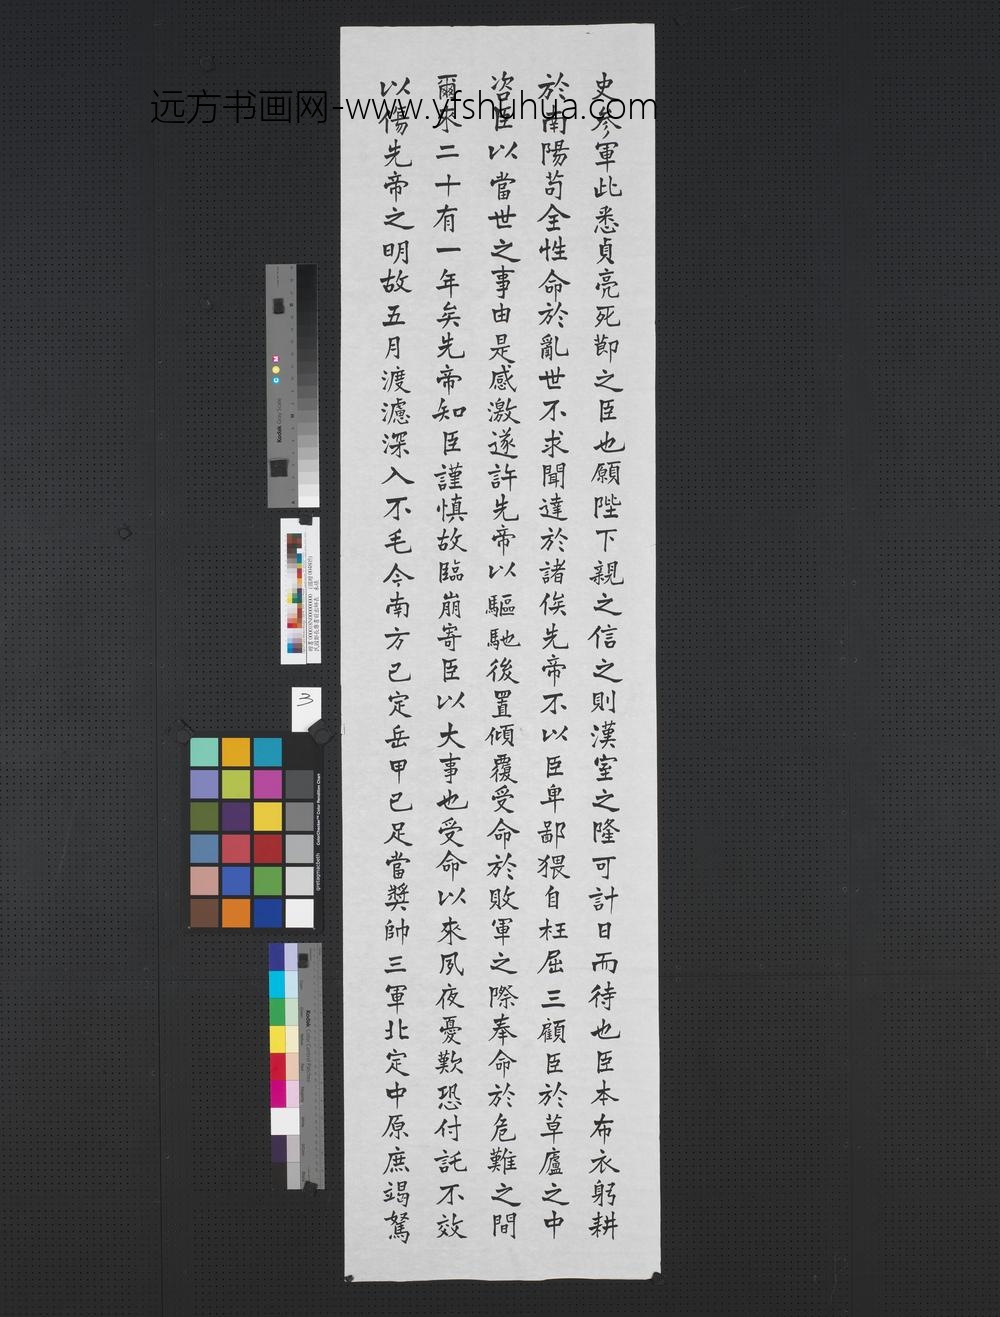 远方书画网-www.yfshuhua.com
史參軍此悉貞亮死節之臣也願陛下親之信之則漢室之隆可計日而待也臣本布衣躬耕
於南陽苟全性命於亂世不求聞達於諸侯先帝不以臣卑鄙猥自枉屈三顧臣於草廬之中
咨臣以當世之事由是感激遂許先帝以驅馳後置傾覆受命於敗軍之際奉命於危難之間
爾來二十有一年矣先帝知臣謹慎故臨崩寄臣以大事也受命以來夙夜憂歎恐付託不效
以傷先帝之明故五月渡濾深入不毛今南方已定兵甲已足當獎帥三軍北定中原庶竭駑
3